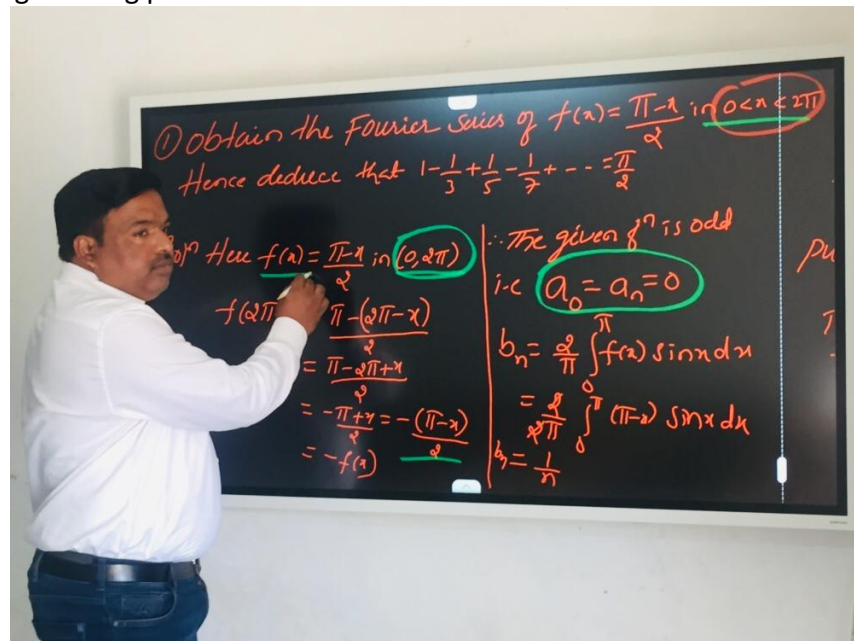 ① Obtain the Fourier series of f(x) = (π-x)/2 in 0<x<2π
Hence deduce that 1 - 1/3 + 1/5 - 1/7 + -- = π/2
Here f(x) = (π-x)/2 in (0, 2π)
f(2π π-(2π-x)/2
= (π-2π+x)/2
= (-π+x)/2 = -(π-x)/2
= -f(x)
∴ The given fⁿ is odd
i.e a₀ = aₙ = 0
bₙ = 2/π ∫₀^π f(x) sinnx dx
= 2/2π ∫₀^π (π-x) sinnx dx
bₙ = 1/n